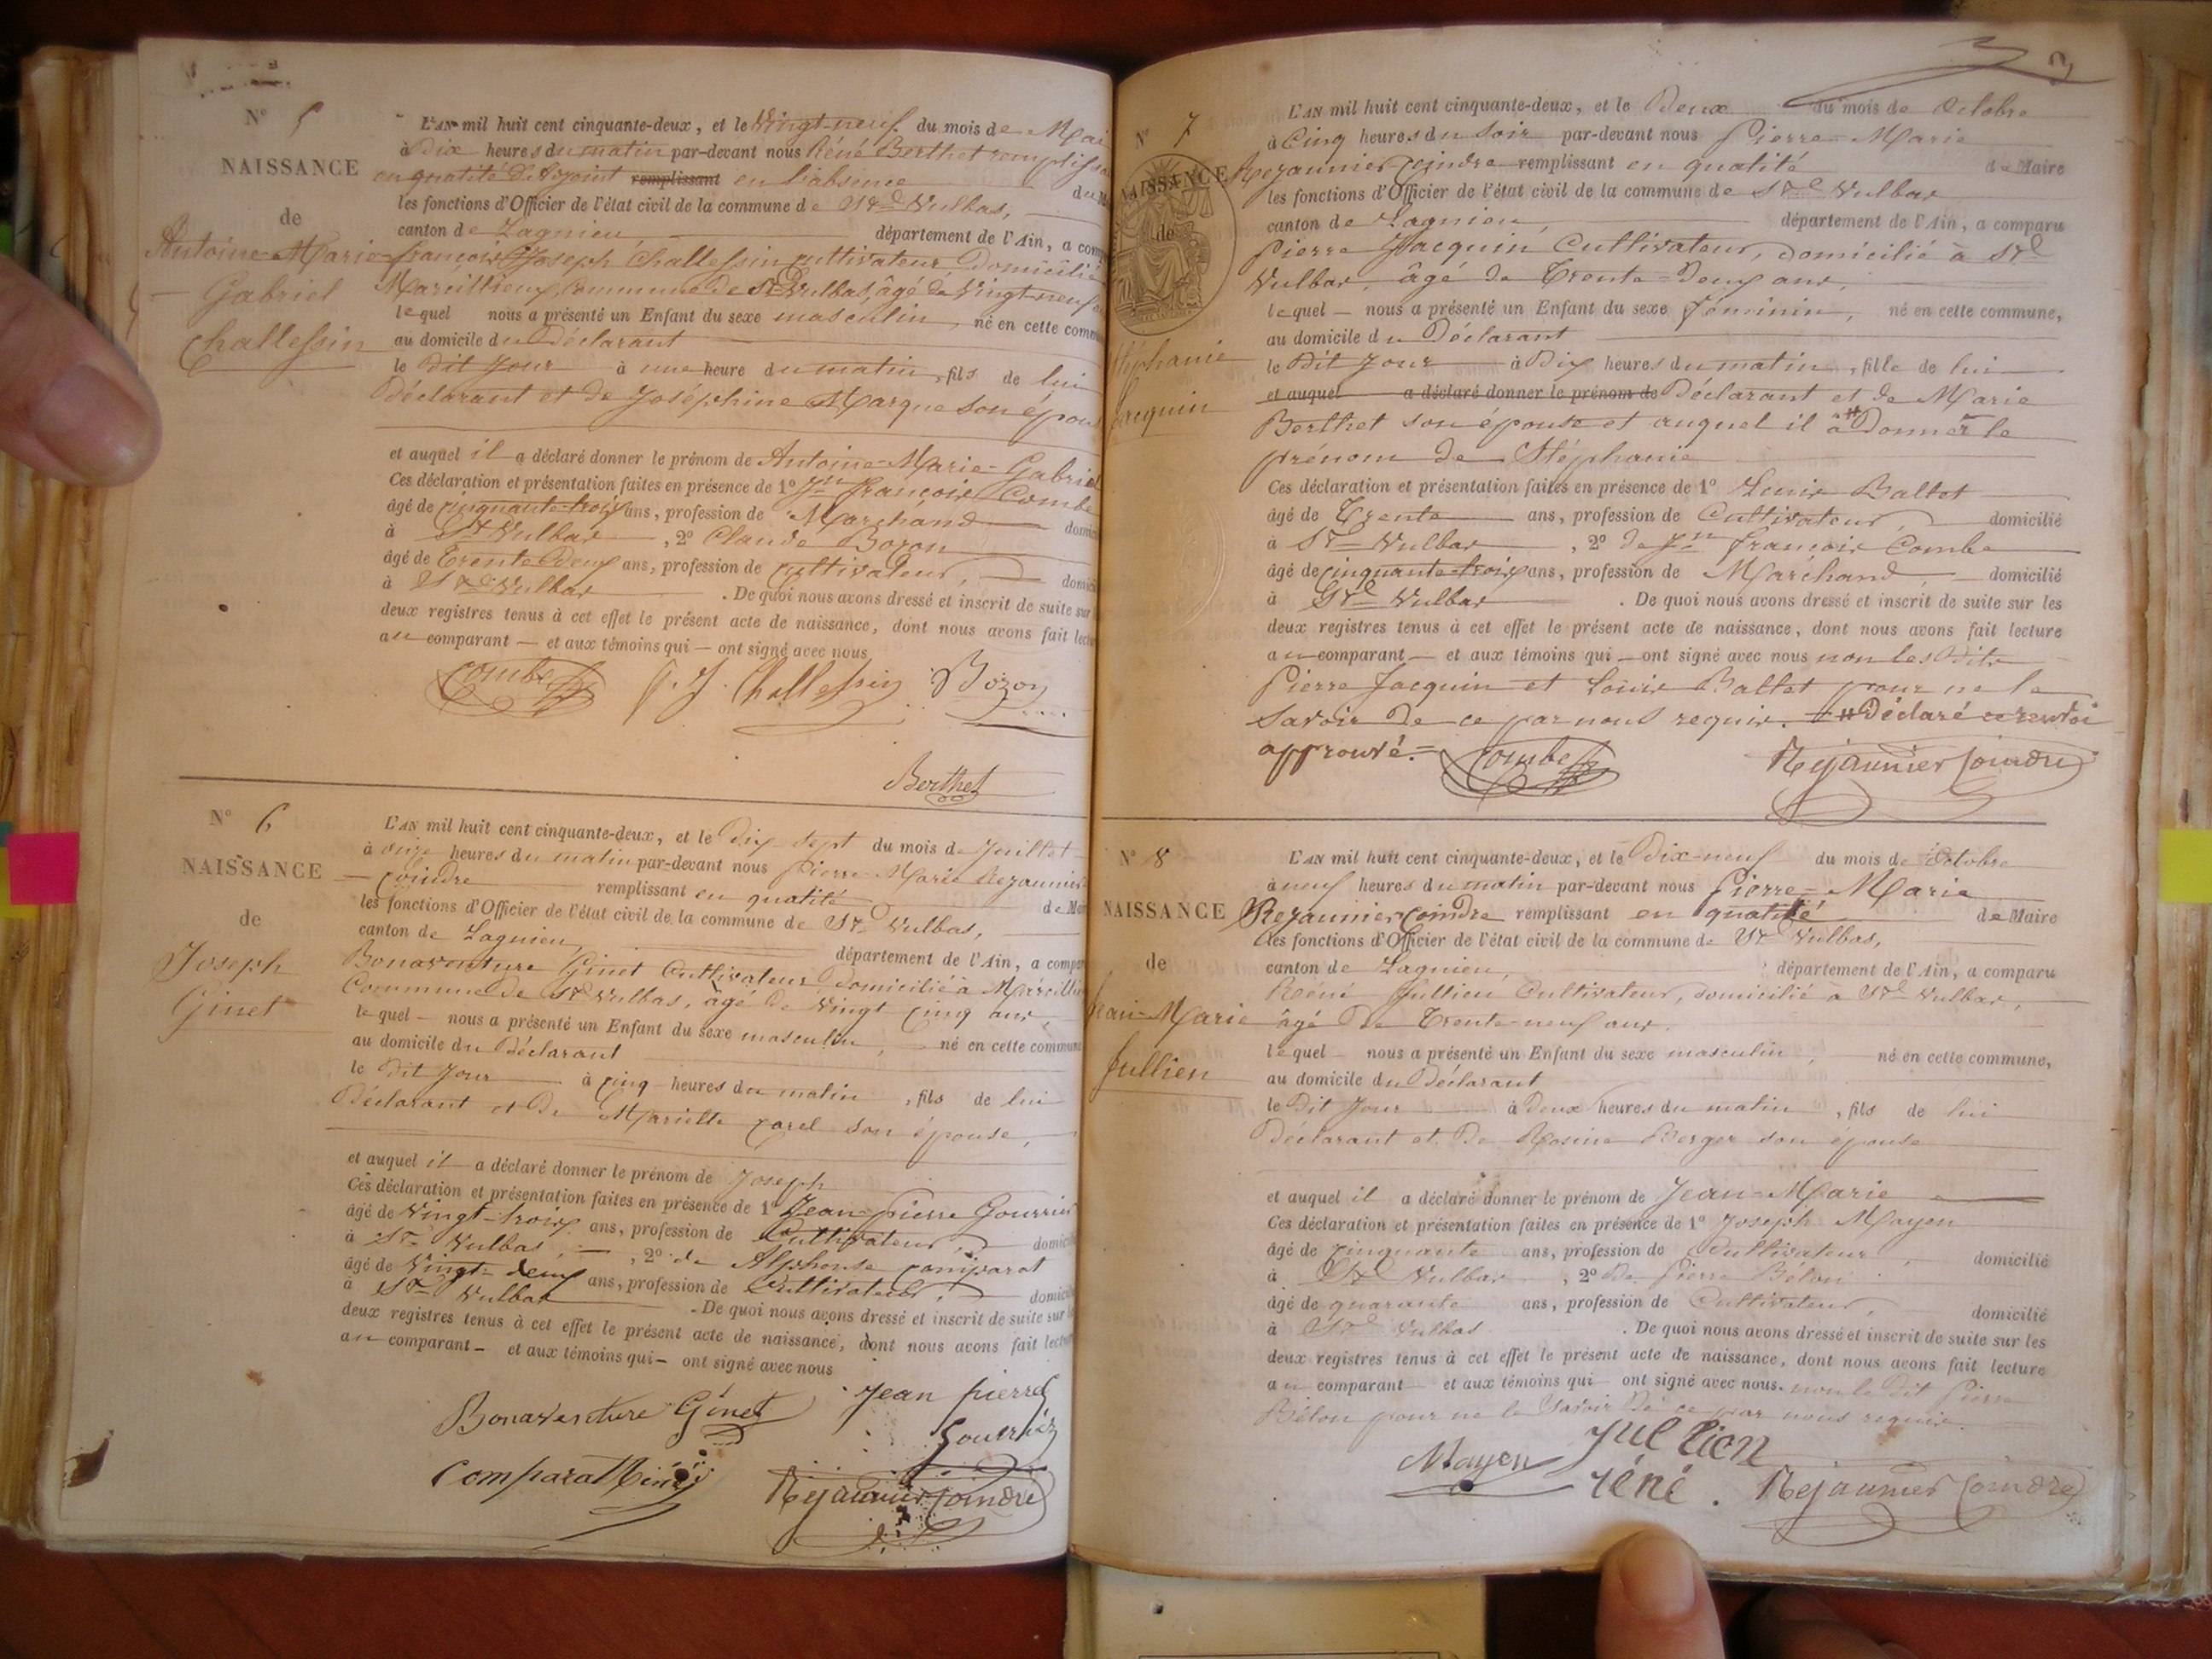 N° 5
NAISSANCE
de
Antoine-Marie-
Gabriel
Challessin
L'AN mil huit cent cinquante-deux, et le Vingt-neuf du mois de Mai
à Dix heures du matin par-devant nous Réné Berthet remplissa
en qualité d'adjoint remplissant en l'absence du M
les fonctions d'Officier de l'état civil de la commune de St Vulbas,
canton de Lagnieu département de l'Ain, a comp
françois Joseph Challessin cultivateur domicilié
Marcillieux, Commune de St Vulbas, âgé de Vingt-neuf a
lequel nous a présenté un Enfant du sexe masculin, né en cette commu
au domicile du Déclarant
le dit Jour à une heure du matin, fils de lui
Déclarant et de Joséphine Marque son épous
et auquel il a déclaré donner le prénom de Antoine-Marie-Gabriel
Ces déclaration et présentation faites en présence de 1° Jn françois Combe
âgé de cinquante-trois ans, profession de Marchand domici
à St Vulbas, 2° Claude Bozon
âgé de Trente Deux ans, profession de Cultivateur, domici
à St Vulbas. De quoi nous avons dressé et inscrit de suite sur
deux registres tenus à cet effet le présent acte de naissance, dont nous avons fait lectu
au comparant — et aux témoins qui — ont signé avec nous
Combe f. J. Challessin Bozon
Berthet
N° 6
NAISSANCE
de
Joseph
Ginet
L'AN mil huit cent cinquante-deux, et le Dix sept du mois de Juillet
à onze heures du matin par-devant nous Pierre-Marie Rezaunier
-Coindre remplissant en qualité de Mai
les fonctions d'Officier de l'état civil de la commune de St Vulbas,
canton de Lagnieu, département de l'Ain, a compar
Bonaventure Ginet Cultivateur Domicilié à Marcillie
Commune de St Vulbas, âgé de Vingt cinq ans,
lequel — nous a présenté un Enfant du sexe masculin, né en cette commune
au domicile du Déclarant
le Dit Jour à Cinq heures du matin, fils de lui
Déclarant et De Mariette Carel son épouse,
et auquel il a déclaré donner le prénom de Joseph
Ces déclaration et présentation faites en présence de 1° Jean-Pierre Gourrier
âgé de Vingt-trois ans, profession de Cultivateur, domici
à St Vulbas, 2° de Alphonse Comparat
âgé de Vingt-deux ans, profession de Cultivateur, domicil
à St Vulbas. De quoi nous avons dressé et inscrit de suite sur l
deux registres tenus à cet effet le présent acte de naissance, dont nous avons fait lectu
au comparant — et aux témoins qui — ont signé avec nous
Bonaventure Ginet Jean Pierre
Gourriér
Comparat
Rejaunier Coindre
N° 7
NAISSANCE
de
Stéphanie
Jacquin
L'AN mil huit cent cinquante-deux, et le Deux du mois de Octobre
à Cinq heures du Soir par-devant nous Pierre-Marie
Rezaunier-Coindre remplissant en qualité de Maire
les fonctions d'Officier de l'état civil de la commune de St Vulbas
canton de Lagnieu, département de l'Ain, a comparu
Pierre Jacquin Cultivateur, domicilié à St
Vulbas, âgé de Trente-Deux ans,
lequel — nous a présenté un Enfant du sexe féminin, né en cette commune,
au domicile du Déclarant
le Dit Jour à Dix heures du matin, fille de lui
et auquel a déclaré donner le prénom de Déclarant et de Marie
Berthet son épouse et auquel il a # Donner le
prénom de Stéphanie
Ces déclaration et présentation faites en présence de 1° Louis Ballet
âgé de Trente ans, profession de Cultivateur, domicilié
à St Vulbas, 2° de Jn françois Combe
âgé de cinquante-trois ans, profession de Marchand, domicilié
à St Vulbas. De quoi nous avons dressé et inscrit de suite sur les
deux registres tenus à cet effet le présent acte de naissance, dont nous avons fait lecture
au comparant — et aux témoins qui — ont signé avec nous non les Dits
Pierre Jacquin et Louis Ballet pour ne le
Savoir De ce par nous requis. # Déclaré ce renvoi
approuvé. Combe Rejaunier Coindre
N° 8
NAISSANCE
de
Jean-Marie
Jullien
L'AN mil huit cent cinquante-deux, et le Dix-neuf du mois de Octobre
à neuf heures du matin par-devant nous Pierre-Marie
Rezaunier Coindre remplissant en qualité de Maire
les fonctions d'Officier de l'état civil de la commune de St Vulbas,
canton de Lagnieu, département de l'Ain, a comparu
Réné Jullien Cultivateur, domicilié à St Vulbas,
âgé De Trente-neuf ans.
lequel nous a présenté un Enfant du sexe masculin, né en cette commune,
au domicile du Déclarant
le Dit Jour à Deux heures du matin, fils de lui
Déclarant et De Rosine Berger son épouse
et auquel il a déclaré donner le prénom de Jean-Marie
Ces déclaration et présentation faites en présence de 1° Joseph Mayen
âgé de cinquante ans, profession de Cultivateur, domicilié
à St Vulbas, 2° De Pierre Béton
âgé de quarante ans, profession de Cultivateur, domicilié
à St Vulbas. De quoi nous avons dressé et inscrit de suite sur les
deux registres tenus à cet effet le présent acte de naissance, dont nous avons fait lecture
au comparant et aux témoins qui ont signé avec nous. non le Dit Pierre
Béton pour ne le Savoir De ce par nous requis.
Mayen Jullien
réné. Rejaunier Coindre